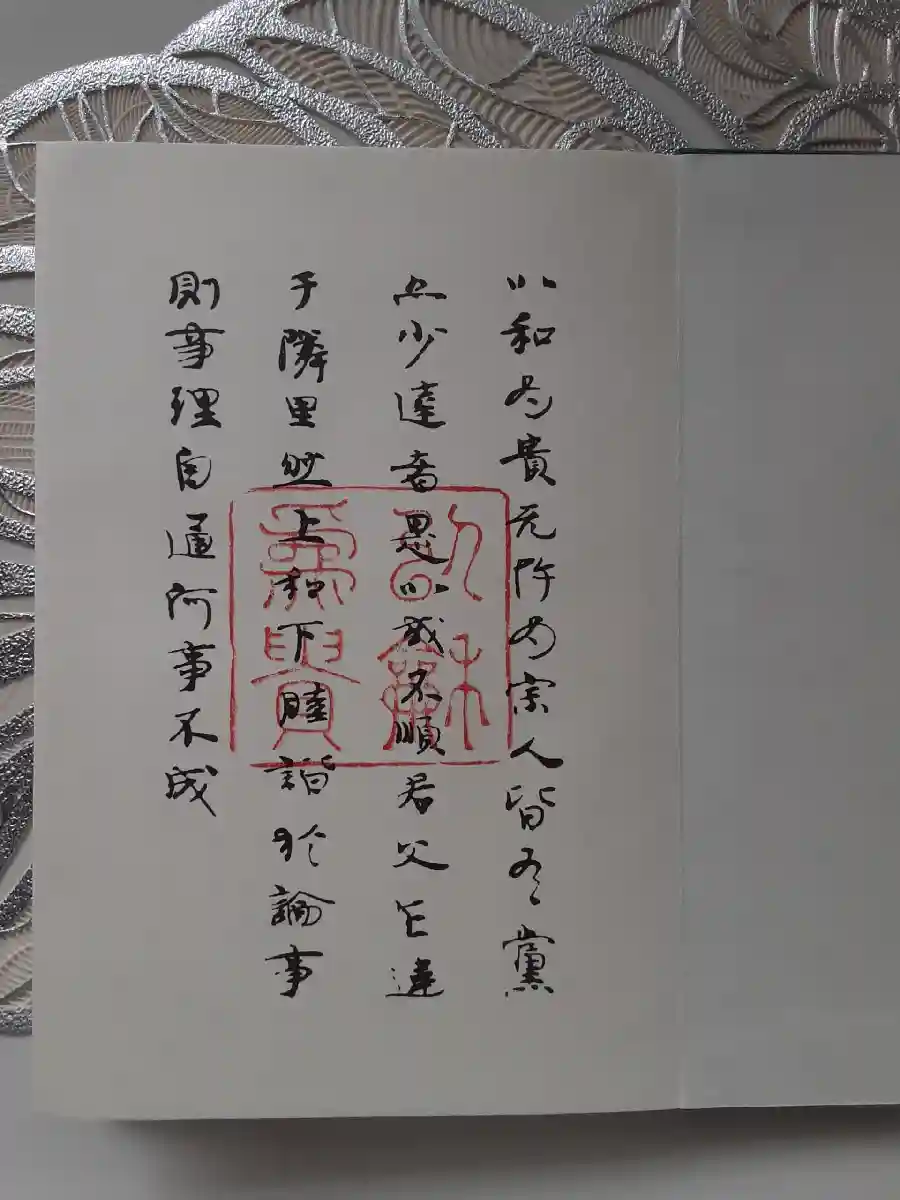 以和為貴无忤為宗人皆有黨
亦少達者是以或不順君父乍違
于隣里然上和下睦諧於論事
則事理自通何事不成
以龢
為貴